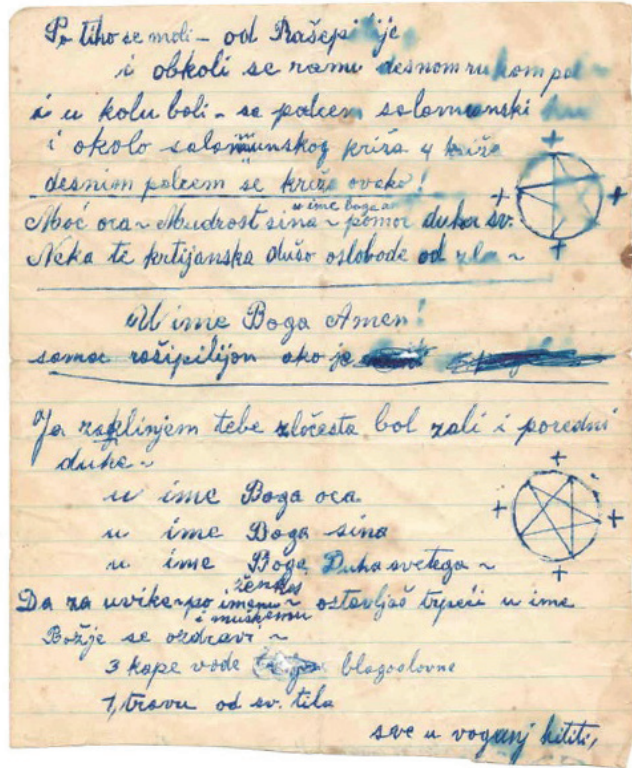 Po tiho se moli - od Rašepilije
i obkoli se ranu desnom rukom
i u kolu boli - se palcem salomunski
i okolo salomunskog križa 4 križa
desnim palcem se križa ovako!
u ime boga
Moć oca ~ Mudrost sina ~ pomoć duha sv.
Neka te krtijanska dušo oslobode od zla ~
U ime Boga Amen!
samoc rašipilijon ako je
Ja zaklinjem tebe zločesta bol zali i poredni
duhe ~
u ime Boga oca
u ime Boga sina
u ime Boga Duha svetega ~
žensko
Da za uvike po imenu ~ ostavljaš trpeći u ime
i muškemu
Božje se ozdravi ~
3 kape vode blagoslovne
1, travu od sv. tila
sve u voganj hititi,